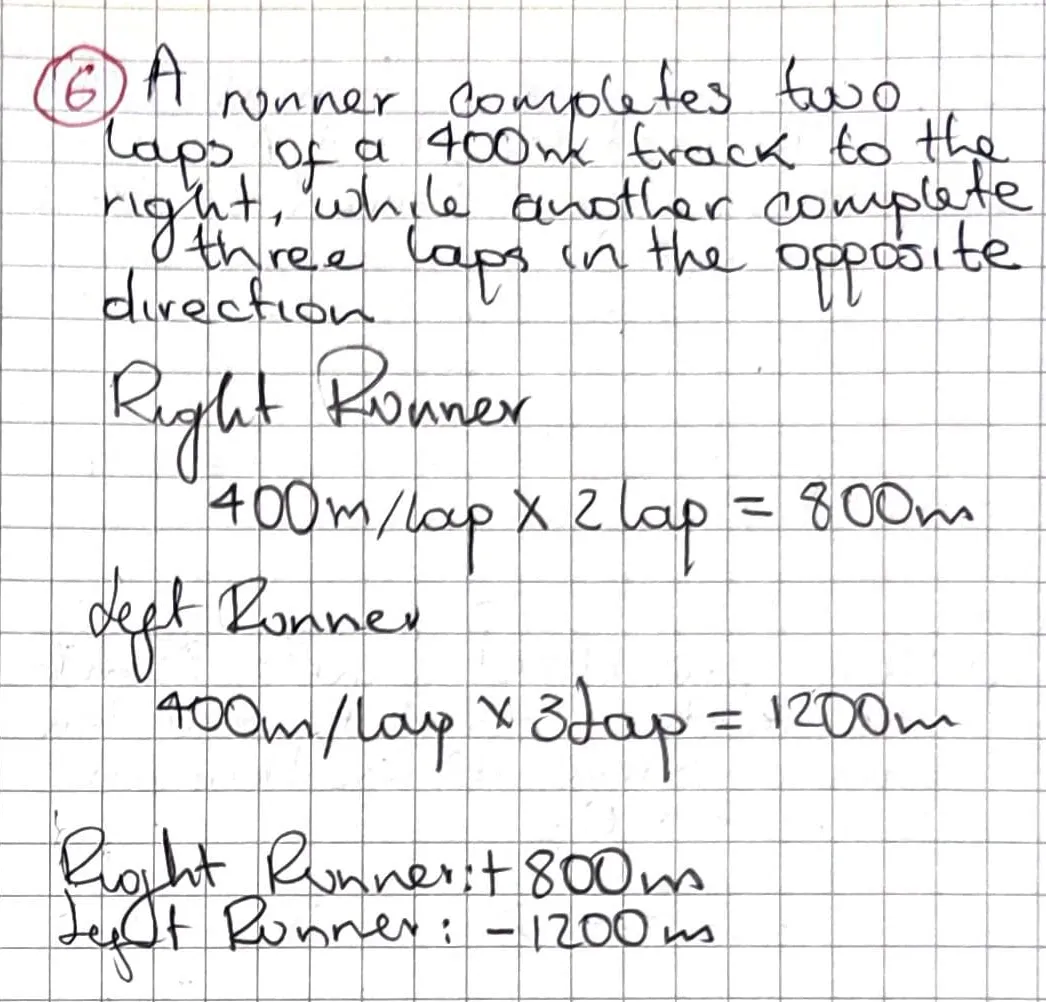 6 A runner completes two
laps of a 400m track to the
right, while another complete
three laps in the opposite
direction
Right Runner
400m/lap x 2 lap = 800m
Left Runner
400m/lap x 3 Lap = 1200m
Right Runner: + 800m
Left Runner: - 1200m